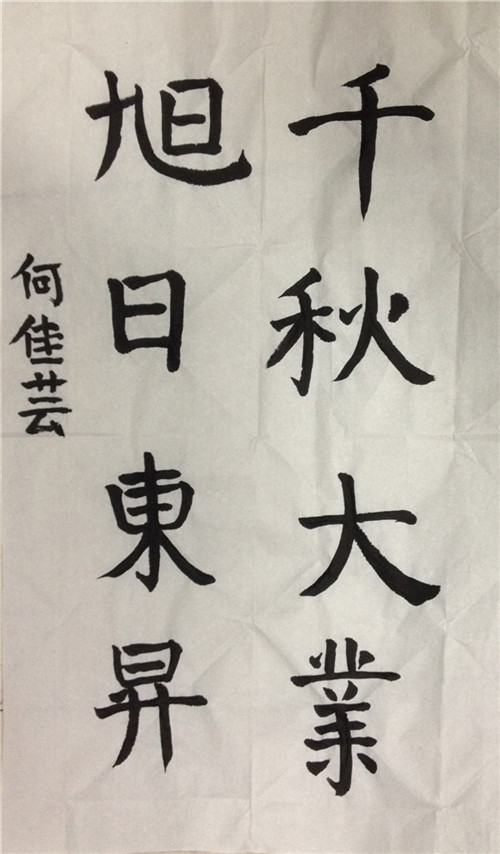 千秋大業
旭日東昇
何佳芸